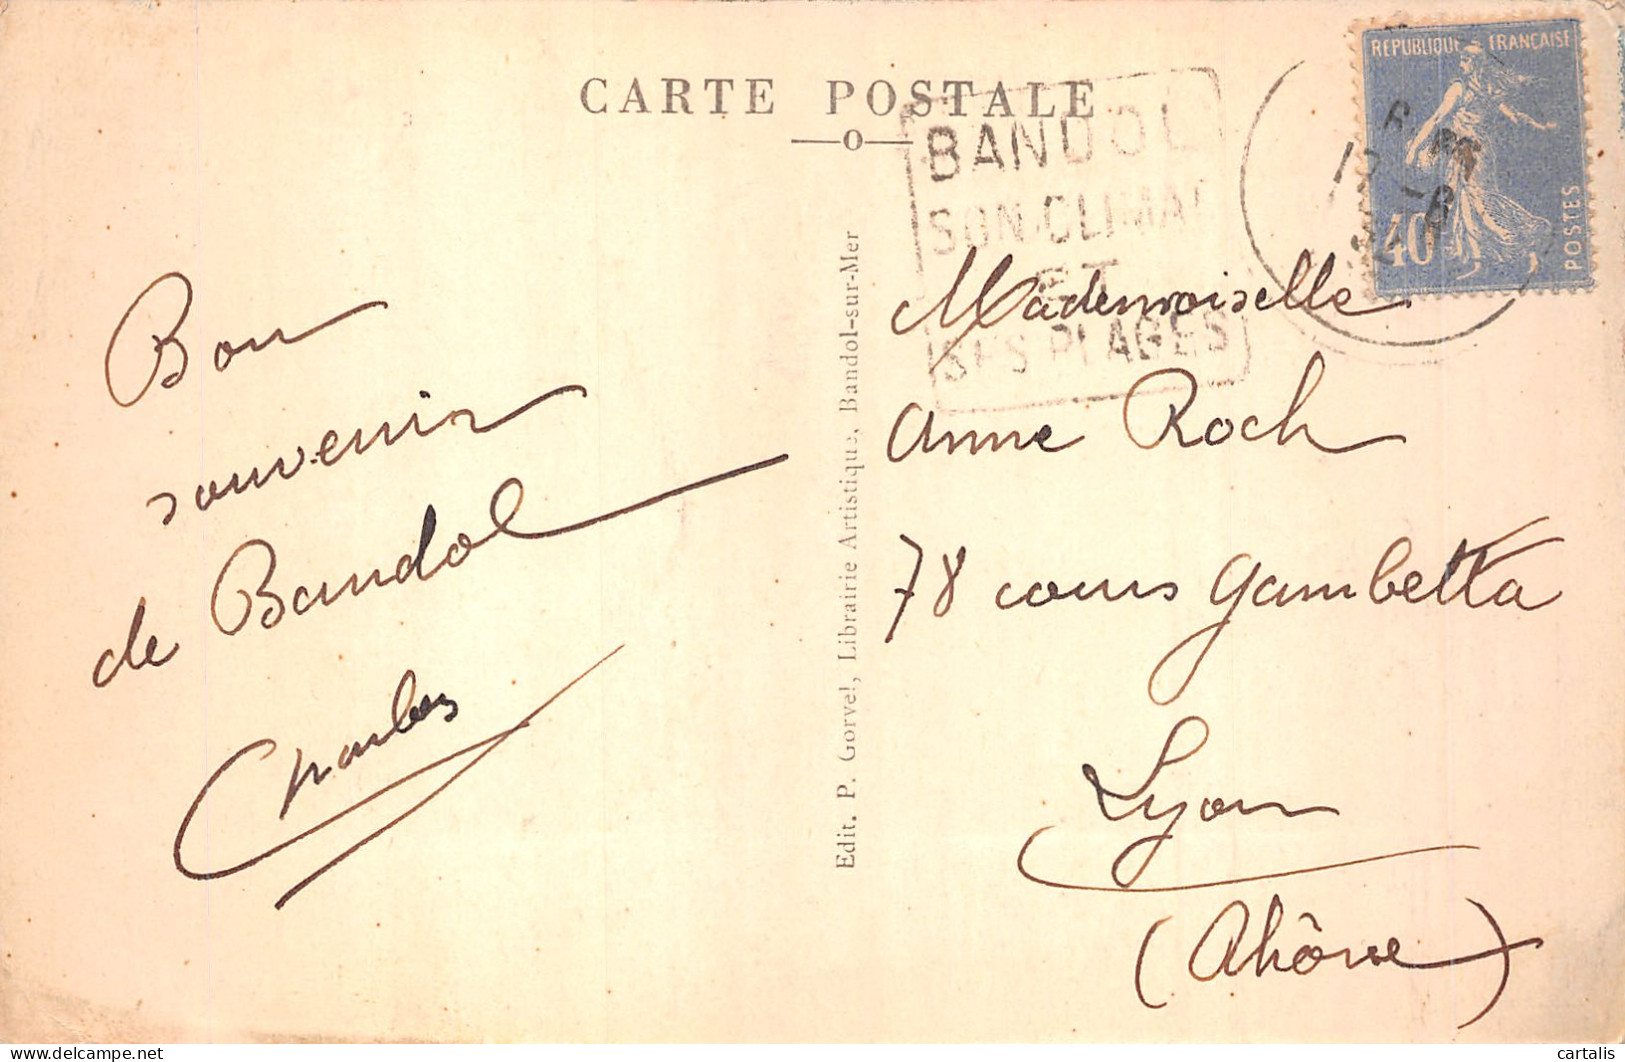 CARTE POSTALE
—o—
REPUBLIQUE FRANCAISE
40
POSTES
BANDOL
SON CLIMAT
ET
SES PLAGES
Bon
souvenir
de Bandol
Charles
Edit. P. Gorvel, Librairie Artistique, Bandol-sur-Mer
Mademoiselle
Anne Roch
78 cours Gambetta
Lyon
(Rhône)
cartalis